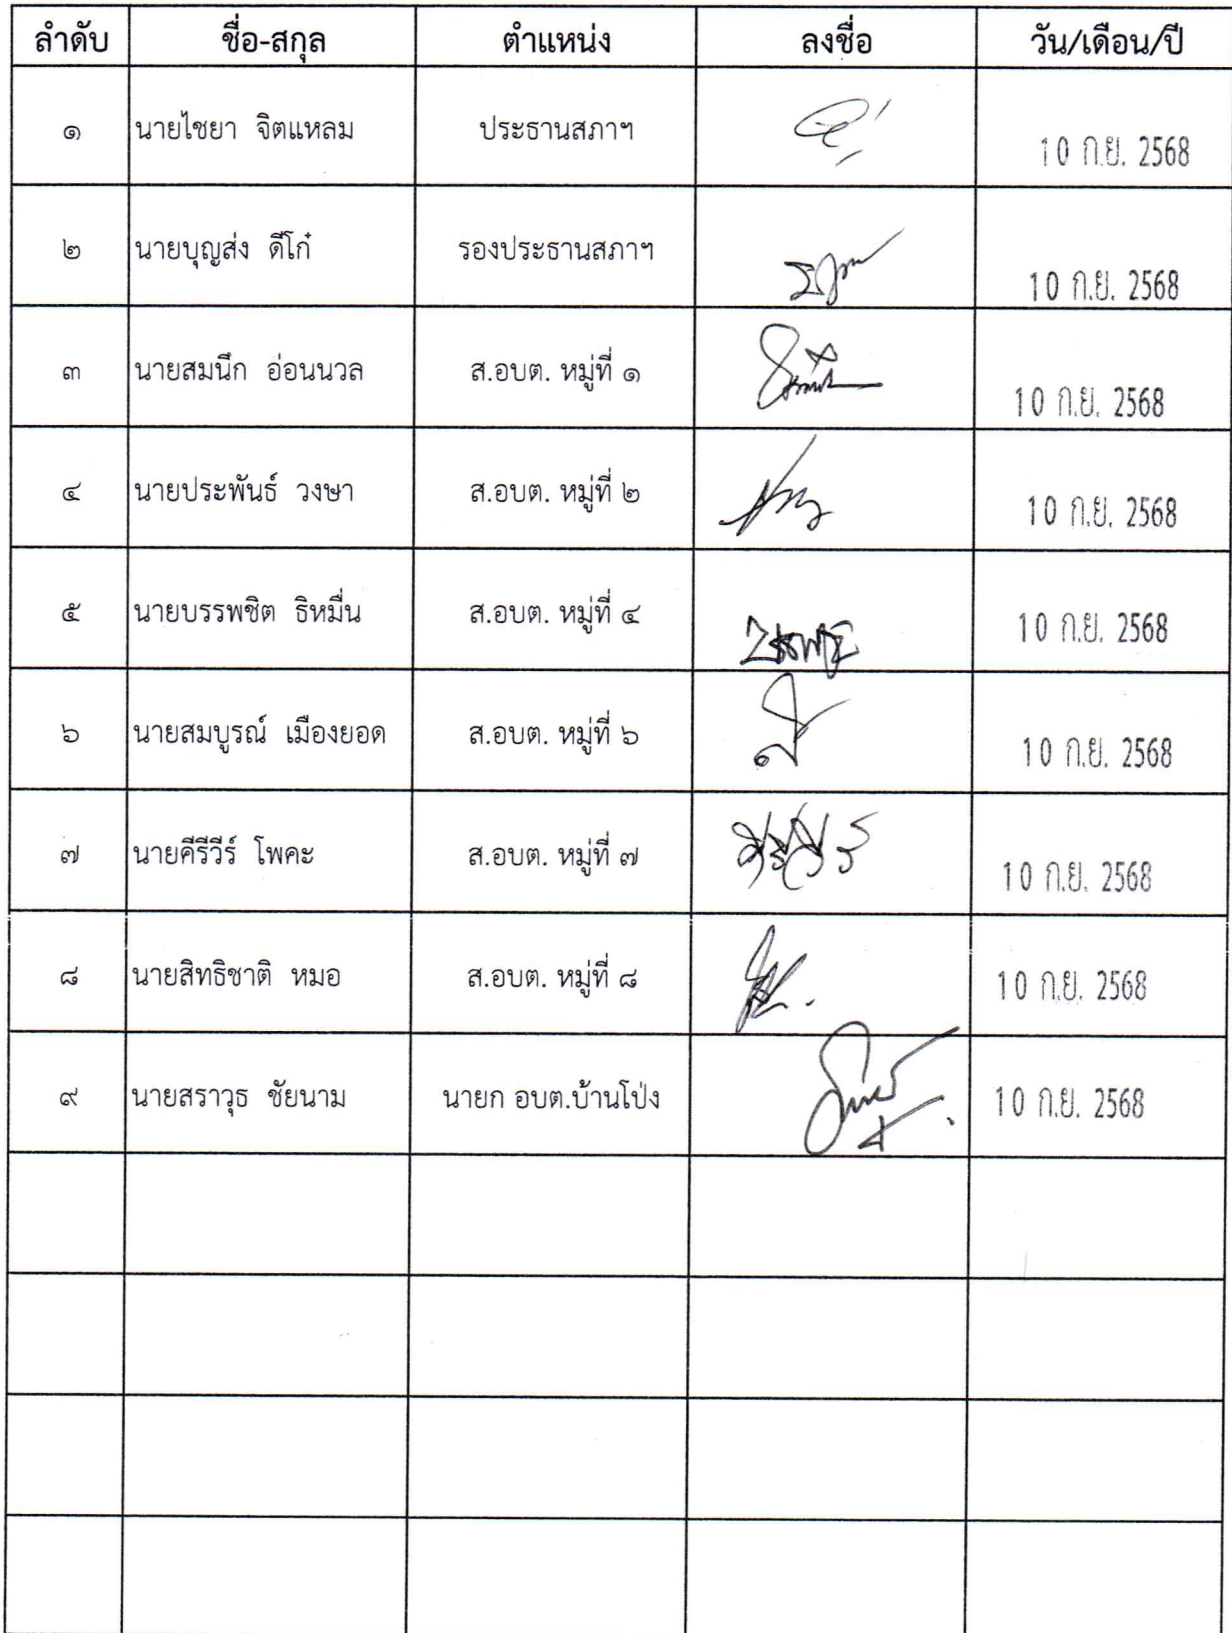 ลำดับ ชื่อ-สกุล ตำแหน่ง ลงชื่อ วัน/เดือน/ปี
๑ นายไชยา จิตแหลม ประธานสภาฯ 10 ก.ย. 2568
๒ นายบุญส่ง ดีโก๋ รองประธานสภาฯ 10 ก.ย. 2568
๓ นายสมนึก อ่อนนวล ส.อบต. หมู่ที่ ๑ 10 ก.ย. 2568
๔ นายประพันธ์ วงษา ส.อบต. หมู่ที่ ๒ 10 ก.ย. 2568
๕ นายบรรพชิต ธิหมื่น ส.อบต. หมู่ที่ ๔ 10 ก.ย. 2568
๖ นายสมบูรณ์ เมืองยอด ส.อบต. หมู่ที่ ๖ 10 ก.ย. 2568
๗ นายคีรีวีร์ โพคะ ส.อบต. หมู่ที่ ๗ 10 ก.ย. 2568
๘ นายสิทธิชาติ หมอ ส.อบต. หมู่ที่ ๘ 10 ก.ย. 2568
๙ นายสราวุธ ชัยนาม นายก อบต.บ้านโป่ง 10 ก.ย. 2568